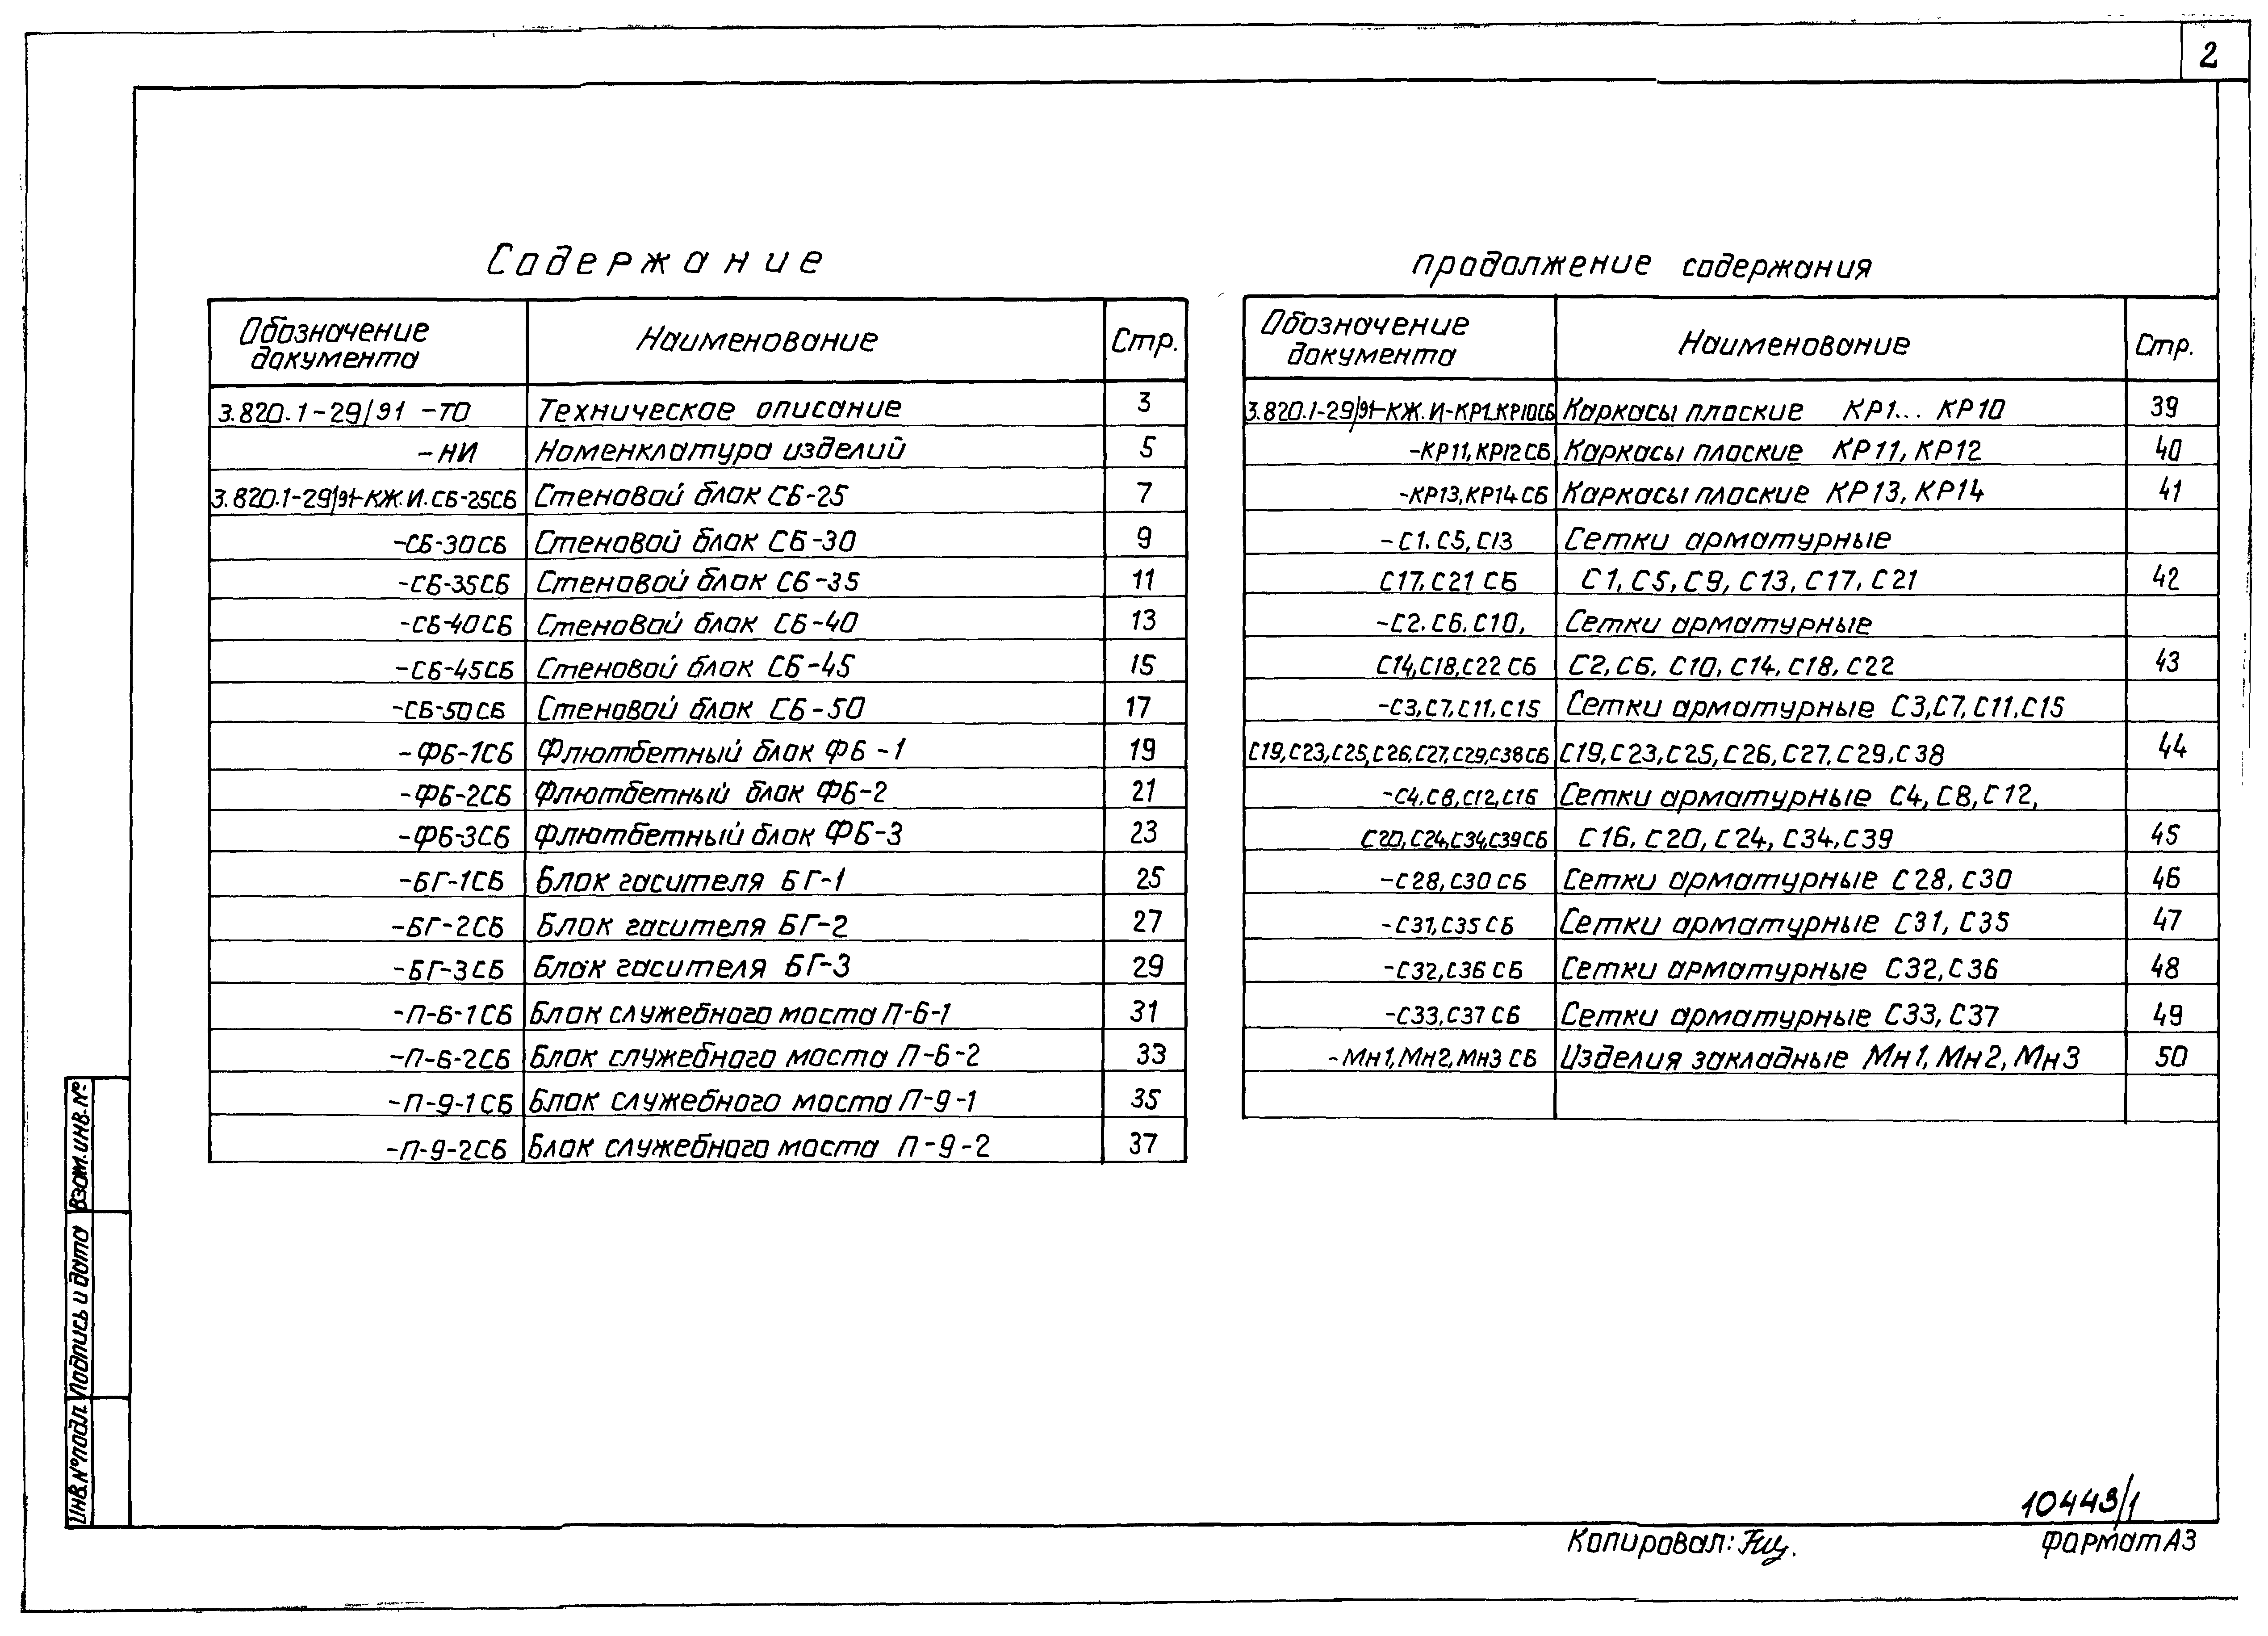 2
Содержание
Обозначение документа Наименование Стр.
3.820.1-29/91 -ТО Техническое описание 3
-НИ Номенклатура изделий 5
3.820.1-29/91-КЖ.И.СБ-25СБ Стеновой блок СБ-25 7
-СБ-30СБ Стеновой блок СБ-30 9
-СБ-35СБ Стеновой блок СБ-35 11
-СБ-40СБ Стеновой блок СБ-40 13
-СБ-45СБ Стеновой блок СБ-45 15
-СБ-50СБ Стеновой блок СБ-50 17
-ФБ-1СБ Флютбетный блок ФБ-1 19
-ФБ-2СБ Флютбетный блок ФБ-2 21
-ФБ-3СБ Флютбетный блок ФБ-3 23
-БГ-1СБ Блок гасителя БГ-1 25
-БГ-2СБ Блок гасителя БГ-2 27
-БГ-3СБ Блок гасителя БГ-3 29
-П-6-1СБ Блок служебного моста П-6-1 31
-П-6-2СБ Блок служебного моста П-6-2 33
-П-9-1СБ Блок служебного моста П-9-1 35
-П-9-2СБ Блок служебного моста П-9-2 37
продолжение содержания
Обозначение документа Наименование Стр.
3.820.1-29/91-КЖ.И-КР1..КР10СБ Каркасы плоские КР1... КР10 39
-КР11, КР12 СБ Каркасы плоские КР11, КР12 40
-КР13, КР14 СБ Каркасы плоские КР13, КР14 41
-С1. С5, С13 Сетки арматурные
С17, С21 СБ С1, С5, С9, С13, С17, С21 42
-С2. С6. С10, Сетки арматурные
С14, С18, С22 СБ С2, С6, С10, С14, С18, С22 43
-С3, С7, С11, С15 Сетки арматурные С3, С7, С11, С15
С19, С23, С25, С26, С27, С29, С38 СБ С19, С23, С25, С26, С27, С29, С38 44
-С4, С8, С12, С16 Сетки арматурные С4, С8, С12,
С20, С24, С34, С39 СБ С16, С20, С24, С34, С39 45
-С28, С30 СБ Сетки арматурные С28, С30 46
-С31, С35 СБ Сетки арматурные С31, С35 47
-С32, С36 СБ Сетки арматурные С32, С36 48
-С33, С37 СБ Сетки арматурные С33, С37 49
-Мн1, Мн2, Мн3 СБ Изделия закладные Мн1, Мн2, Мн3 50
Взам. инв. №
Подпись и дата
Инв. № подл.
10443/1
Копировал:
Формат А3